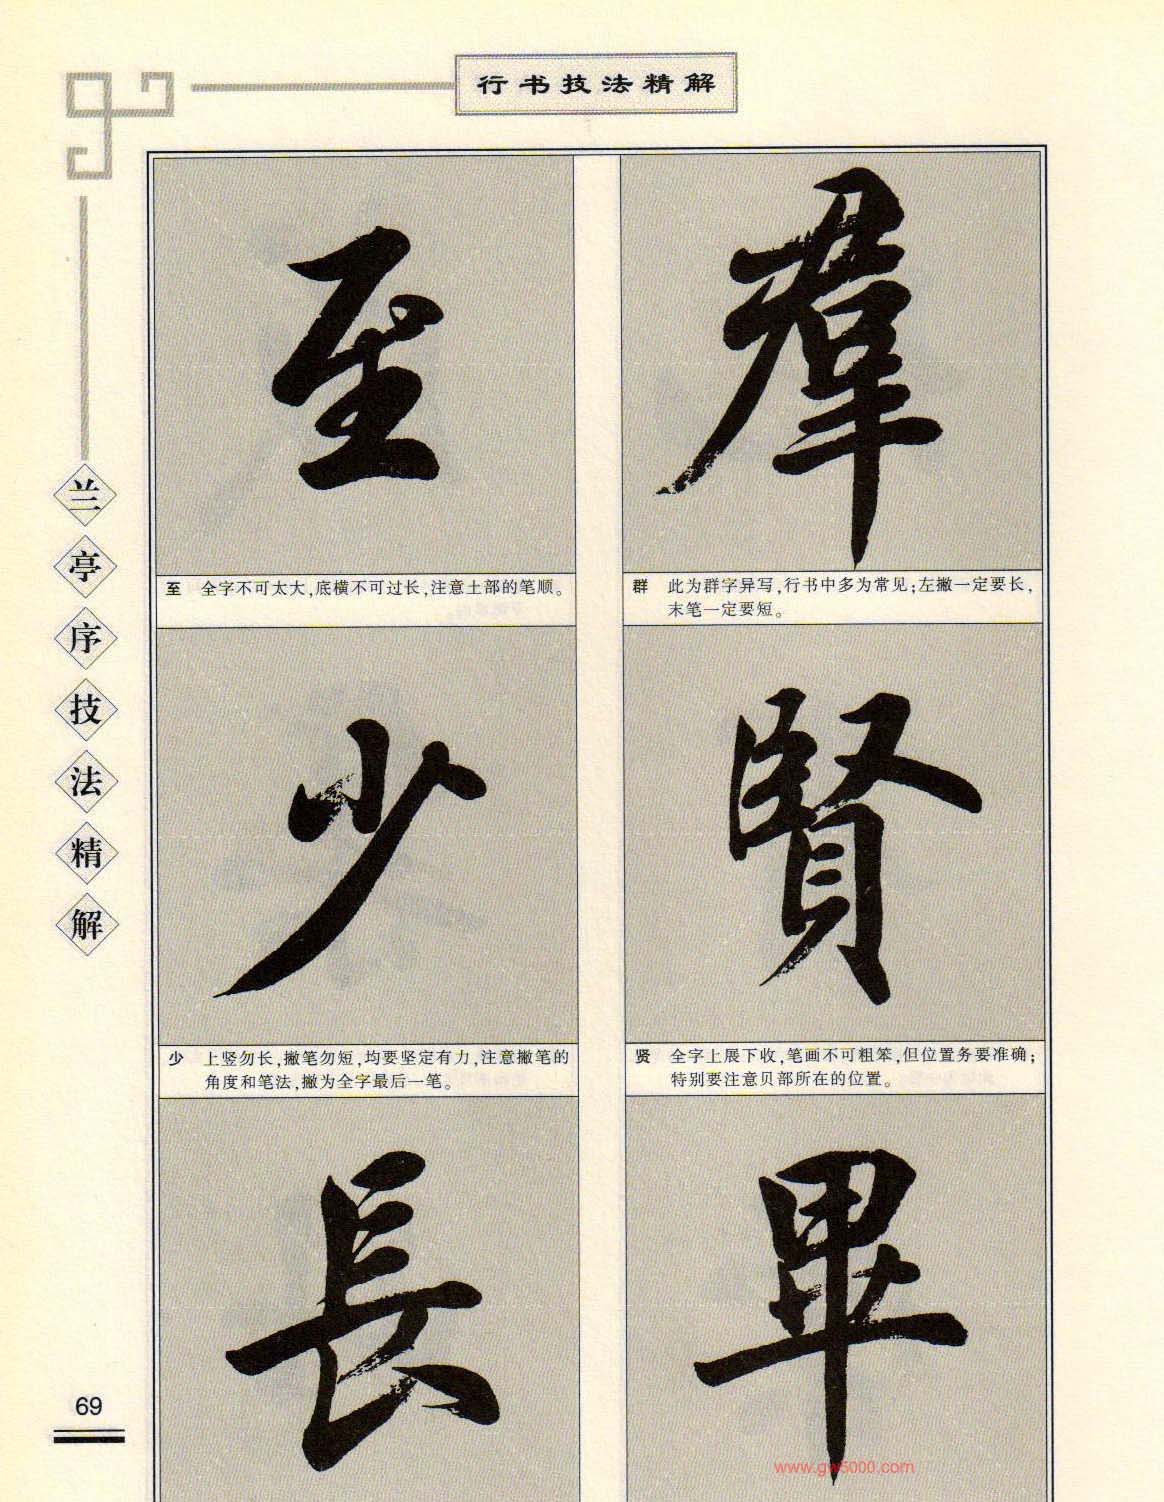 行书技法精解
兰亭序技法精解
群
群 此为群字异写,行书中多为常见;左撇一定要长,
末笔一定要短。
賢
贤 全字上展下收,笔画不可粗笨,但位置务要准确;
特别要注意贝部所在的位置。
畢
至
至 全字不可太大,底横不可过长,注意土部的笔顺。
少
少 上竖勿长,撇笔勿短,均要坚定有力,注意撇笔的
角度和笔法,撇为全字最后一笔。
長
69
www.gw5000.com